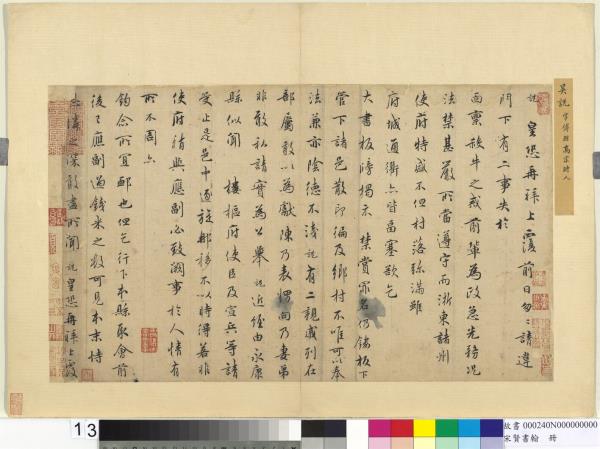 吳說 字傅朋高宗時人
說 皇恐再拜上覆前日匆匆請違
門下有二事失於
面稟殺牛之戒前輩為政急先務況
法禁甚嚴所當遵守而浙東諸州
使府特盛不但村落 滿雖
府城通衢亦皆 塞欲乞
大書板牓揭示禁賞罪名仍鏤板下
管下諸邑散印徧及鄉村不唯可以奉
法兼亦陰德不淺說有二親戚列在
部屬敢以為獻陳乃表 向乃妻弟
非敢私請實為公舉說近經由永康
縣似聞 樓樞府使臣及宣兵等請
受止是邑中逐旋那移不以時得若非
使府待與應副必致闕事於人情有
所不周亦
鈞念所宜卹也但乞行下本縣取會前
後應副過錢米之數可見本末恃
憐之深敢盡所聞說皇恐再拜上覆
13
故書 000240N000000000
宋賢書翰 冊